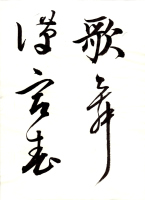 歌舞
漢宮春